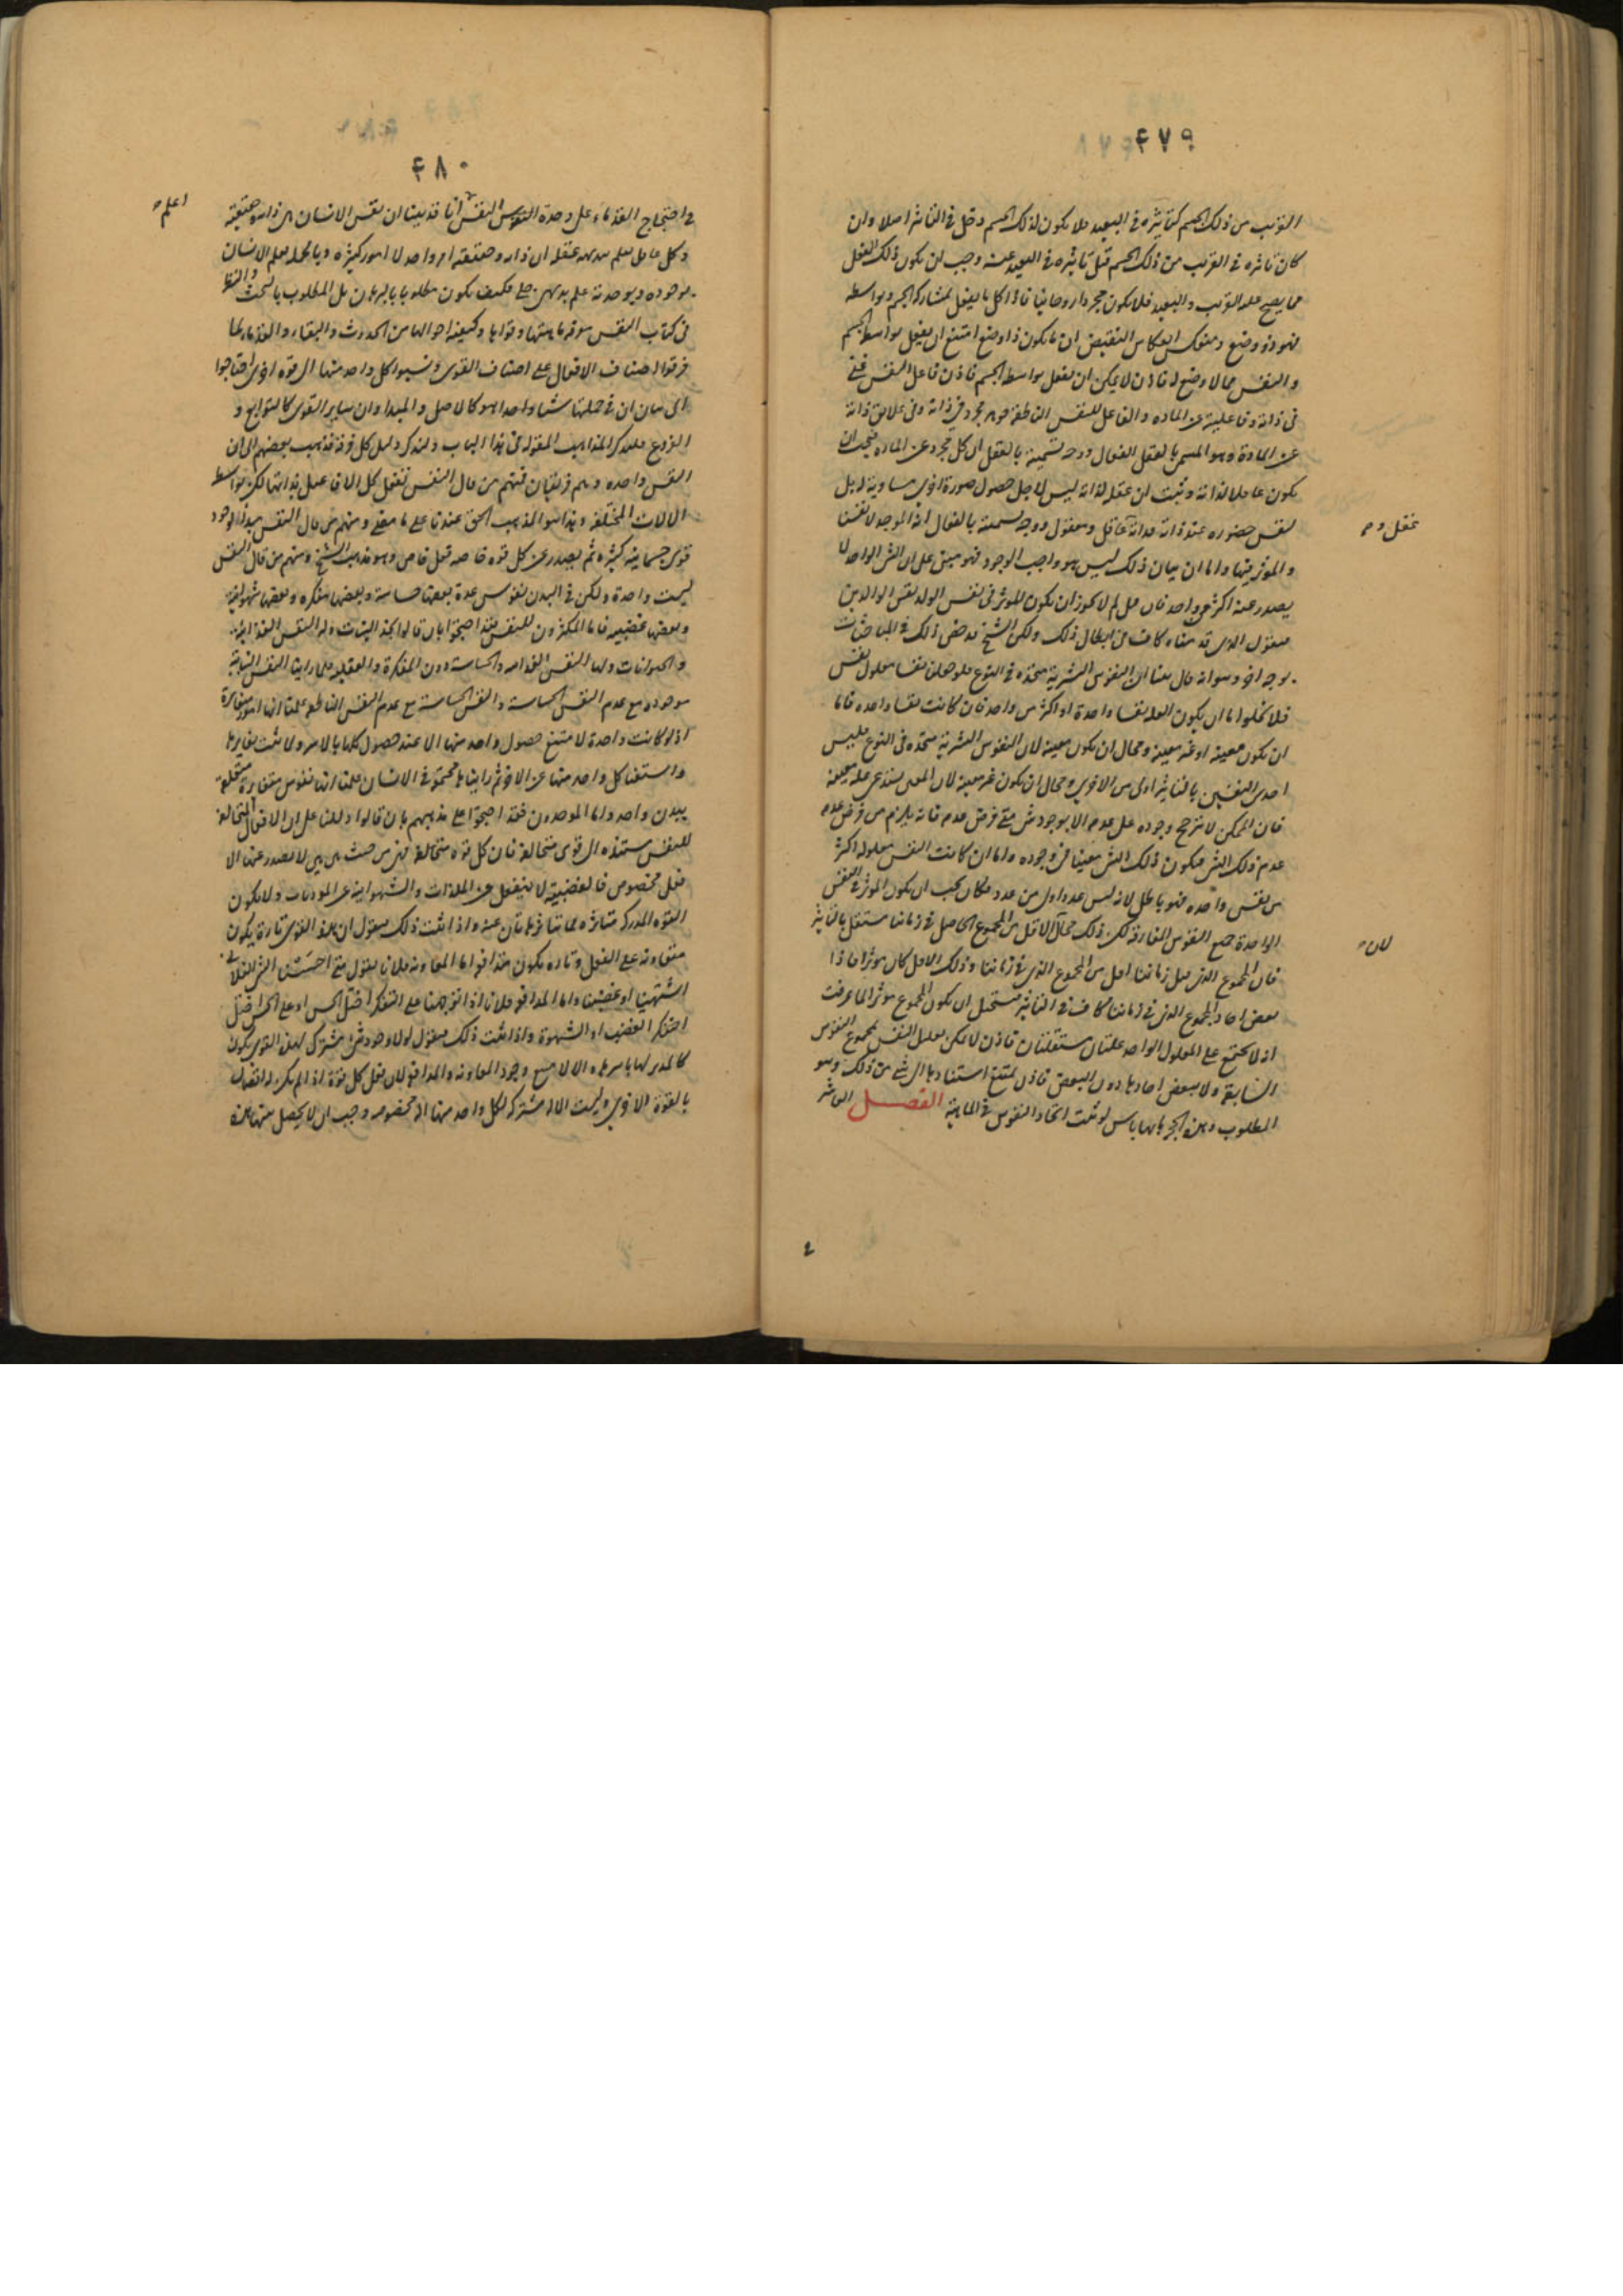 ٤٧٩
القريب من ذلك الجسم كتأثيره في البعيد فلا يكون لذلك الجسم دخل في التأثير اصلا وان
كان تأثيره في القريب من ذلك الجسم قبل تأثيره في البعيد عنه وجب ان يكون ذلك الفعل
مما يصح عليه القريب والبعيد فلا يكون مجردا روحانيا فاذا كل ما يفعل بمشاركة الجسم وبواسطه
فهو ذو وضع وينعكس انعكاس النقيض ان ما لا يكون ذا وضع امتنع ان يفعل بواسطة الجسم
والنفس مما لا وضع له فاذن لا يمكن ان يفعل بواسطة الجسم فاذن فاعل النفس غني
في ذاته وفاعليته عن الماده والفاعل للنفس الناطقة جوهر مجرد في ذاته وفي علايق ذاته
عن المادة وهو المسمى بالعقل الفعال ووجه تسميته بالعقل ان كل مجرد عن الماده فيجب ان
يكون عاقلا لذاته وثبت ان عقله لذاته ليس لاجل حصول صورة اخرى مساوية له بل
لنفس حضوره عند ذاته فذاته عاقل ومعقول ووجه تسميته بالفعال انه الموجد لانفسنا
والمؤثر فيها واما ان بيان ذلك ليس هو واجب الوجود فهو مبني على ان الشي الواحد لا
يصدر عنه اكثر من واحد فان قيل لم لا يجوز ان يكون المؤثر في نفس الولد نفس الوالدين
فنقول الذي قدمناه كاف في ابطال ذلك ولكن الشيخ قد خص ذلك في المباحثات
بوجه اخر وهو انه قال بينا ان النفوس البشرية متحده في النوع فلو جعلنا نفسا معلول نفس
فلا يخلو اما ان يكون العله نفسا واحدة او اكثر من واحد فان كانت نفسا واحده فاما
ان يكون معينه او غير معينه ومحال ان يكون معينه لان النفوس البشرية متحده في النوع فليس
احدى النفسين بالتأثير اولى من الاخرى ومحال ان يكون غير معينه لان المعلول يستدعي عله معينه
فان الممكن لا يترجح وجوده على عدمه الا بوجود شي متى فرض عدمه فانه يلزم من فرض عدمه
عدم ذلك الشي فيكون ذلك الشي معينا في وجوده واما ان كانت النفس معلوله اكثر
من نفس واحده فهو باطل لانه ليس عدد اولى من عدد فكان يجب ان يكون المؤثر في النفس
الواحدة جميع النفوس المفارقة لكن ذلك محال لان الاقل من المجموع الحاصل في زماننا مستقل بالتأثير
فان المجموع الذي قبل زماننا اقل من المجموع الذي في زماننا وذلك الاقل كان مؤثرا فاذا
بعض احاد المجموع الذي في زماننا كاف في التأثير فيستحيل ان يكون المجموع مؤثرا لما عرفت
انه لا يجتمع على المعلول الواحد علتان مستقلتان فاذن لا يمكن تعليل النفس بمجموع النفوس
السابقه ولا ببعض احادها دون البعض فاذن يمتنع استنادها الى شي من ذلك وهو
المطلوب وهذه الحجة لا باس بها لو ثبت اتحاد النفوس في الماهية الفصل العاشر
عقل وم
لان
٤٨٠
في احتجاج القدماء على وحدة النفس انا قد بينا ان نفس الانسان هي ذاته وحقيقته
وكل عاقل يعلم ببديهة عقله ان ذاته وحقيقته امر واحد لا امور كثيره وبالجملة يعلم الانسان
بوجوده وبوحدته علم بديهي جلي فكيف يكون مطلوبا بالبرهان بل المطلوب بالبحث والنظر
في كتاب النفس معرفة ماهيتها وقواها وكيفية احوالها من الحدوث والبقاء والقدماء لما
فرقوا اصناف الافعال على اصناف القوى ونسبوا كل واحد منها الى قوه اخرى احتاجوا
الى بيان ان في جملتها شيئا واحدا هو كالاصل والمبدا وان ساير القوى كالتوابع و
الفروع فلنذكر المذاهب المقوله في هذا الباب ولنذكر دليل كل فرقة فذهب بعضهم الى ان
النفس واحده وهم فريقان فمنهم من قال النفس تفعل كل الافاعيل بذاتها لكن بواسطة
الالات المختلفة وهذا هو المذهب الحق عندنا على ما مضى ومنهم من قال النفس مبدأ لوجود
قوى جسمانيه كثيره ثم يصدر عن كل قوه خاصه فعل خاص وهو مذهب الشيخ ومنهم من قال النفس
ليست واحدة ولكن في البدن نفوس عدة بعضها حساسة وبعضها مفكره وبعضها شهوانية
وبعضها غضبيه فاما المكثرون للنفس فقد احتجوا بان قالوا نجد النبات وله النفس الغذائية
والحيوانات ولها النفس الغذائيه والحساسة دون المفكرة والعقليه فلما راينا النفس النباتية
موجوده مع عدم النفس الحساسة والنفس الحساسة مع عدم النفس الناطقه علمنا انها امور متغايرة
اذ لو كانت واحدة لامتنع حصول واحد منها الا عند حصول كلها بالاسر ولما ثبت تغايرها
واستغنا كل واحد منها عن الاخر ثم رايناها مجتمعة في الانسان علمنا انها نفوس متغايرة متعلقة
ببدن واحد واما الموحدون فقد احتجوا على مذهبهم بان قالوا دللنا على ان الافعال المتخالفة
للنفس مستنده الى قوى متخالفه فان كل قوه متخالفة فهي من حيث هي هي لا يصدر عنها الا
فعل مخصوص فالغضبية لا ينفعل عن الملذات والشهوانية عن الموذيات ولا يكون
القوه المدركه متأثره مما يتأثر هاتان عنه واذا ثبت ذلك فنقول ان هذه القوى تارة يكون
متعاونه على الفعل وتاره يكون متدافعه اما المعاونه فلانا نقول متى احسسنا الشي الفلاني
اشتهينا او غضبنا واما المدافعه فلانا اذا توجهنا على التفكر اختل الحس او على الحس اختل
التفكر الغضب او الشهوة واذا ثبت ذلك فنقول لولا وجود شي مشترك لهذه القوى يكون
كالمدبر لها باسرها والا لامتنع وجود المعاونه والمدافعه لان فعل كل قوة اذا لم يكن له اتصال
بالقوة الاخرى وليست الاله مشتركه بل لكل واحد منها اله مخصوصه وجب ان لا يحصل بينها هذه
اعلم